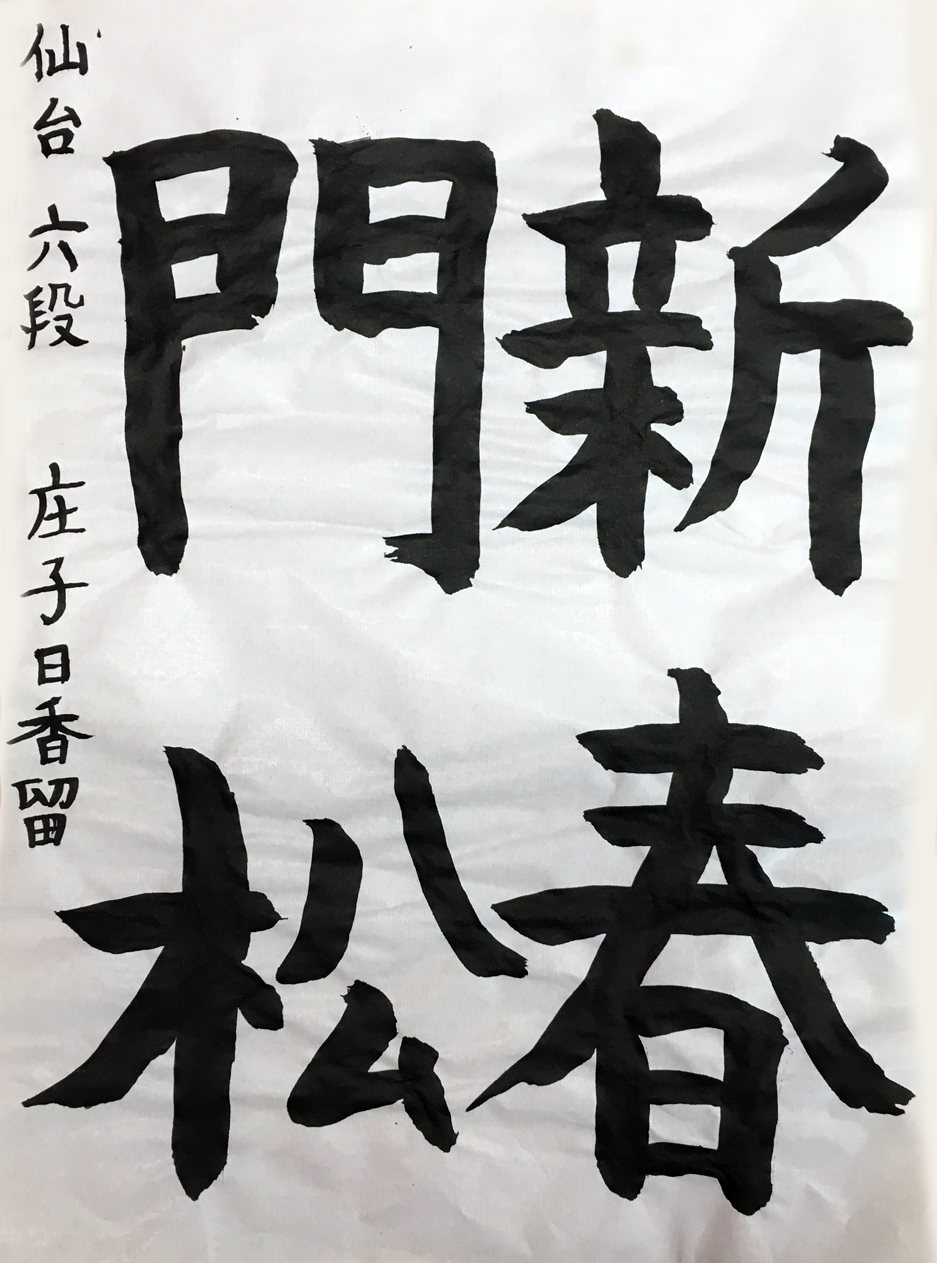 新春
門松
仙台 六段 庄子日香留